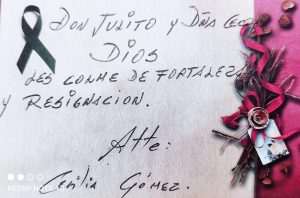 Don Julito y Dña
Dios
les colme de fortaleza
y resignacion.
Atte:
Cecilia Gómez.
REDMI NOTE